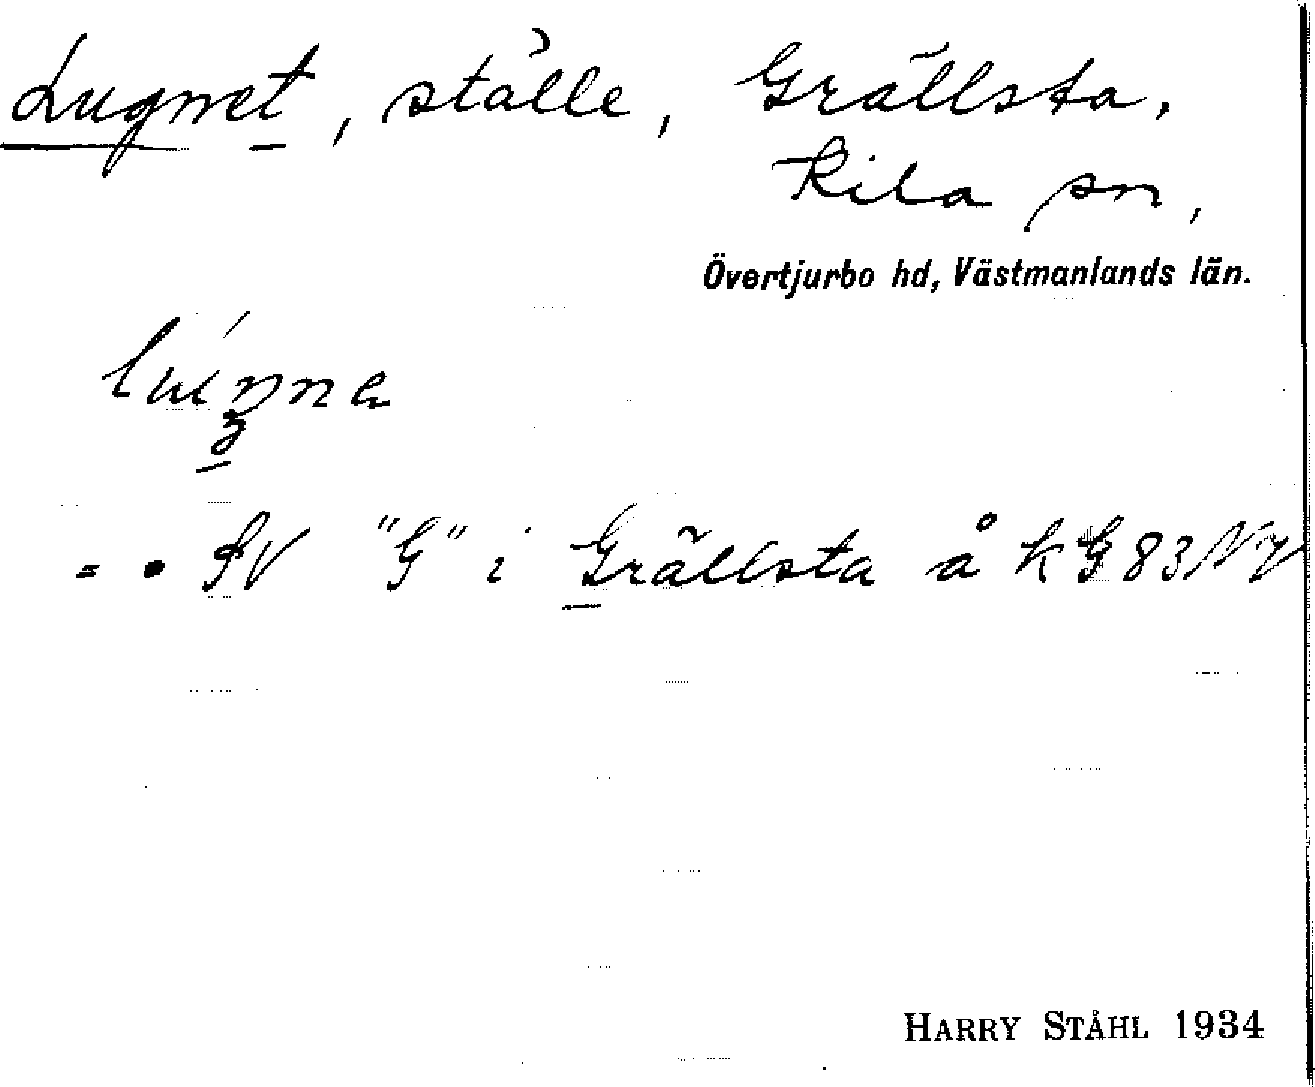 Lugnet, ställe, Grällsta,
Kila sn,
Övertjurbo hd, Västmanlands län.
= • SV "G" i Grällsta å kG 83 NV
HARRY STÅHL 1934